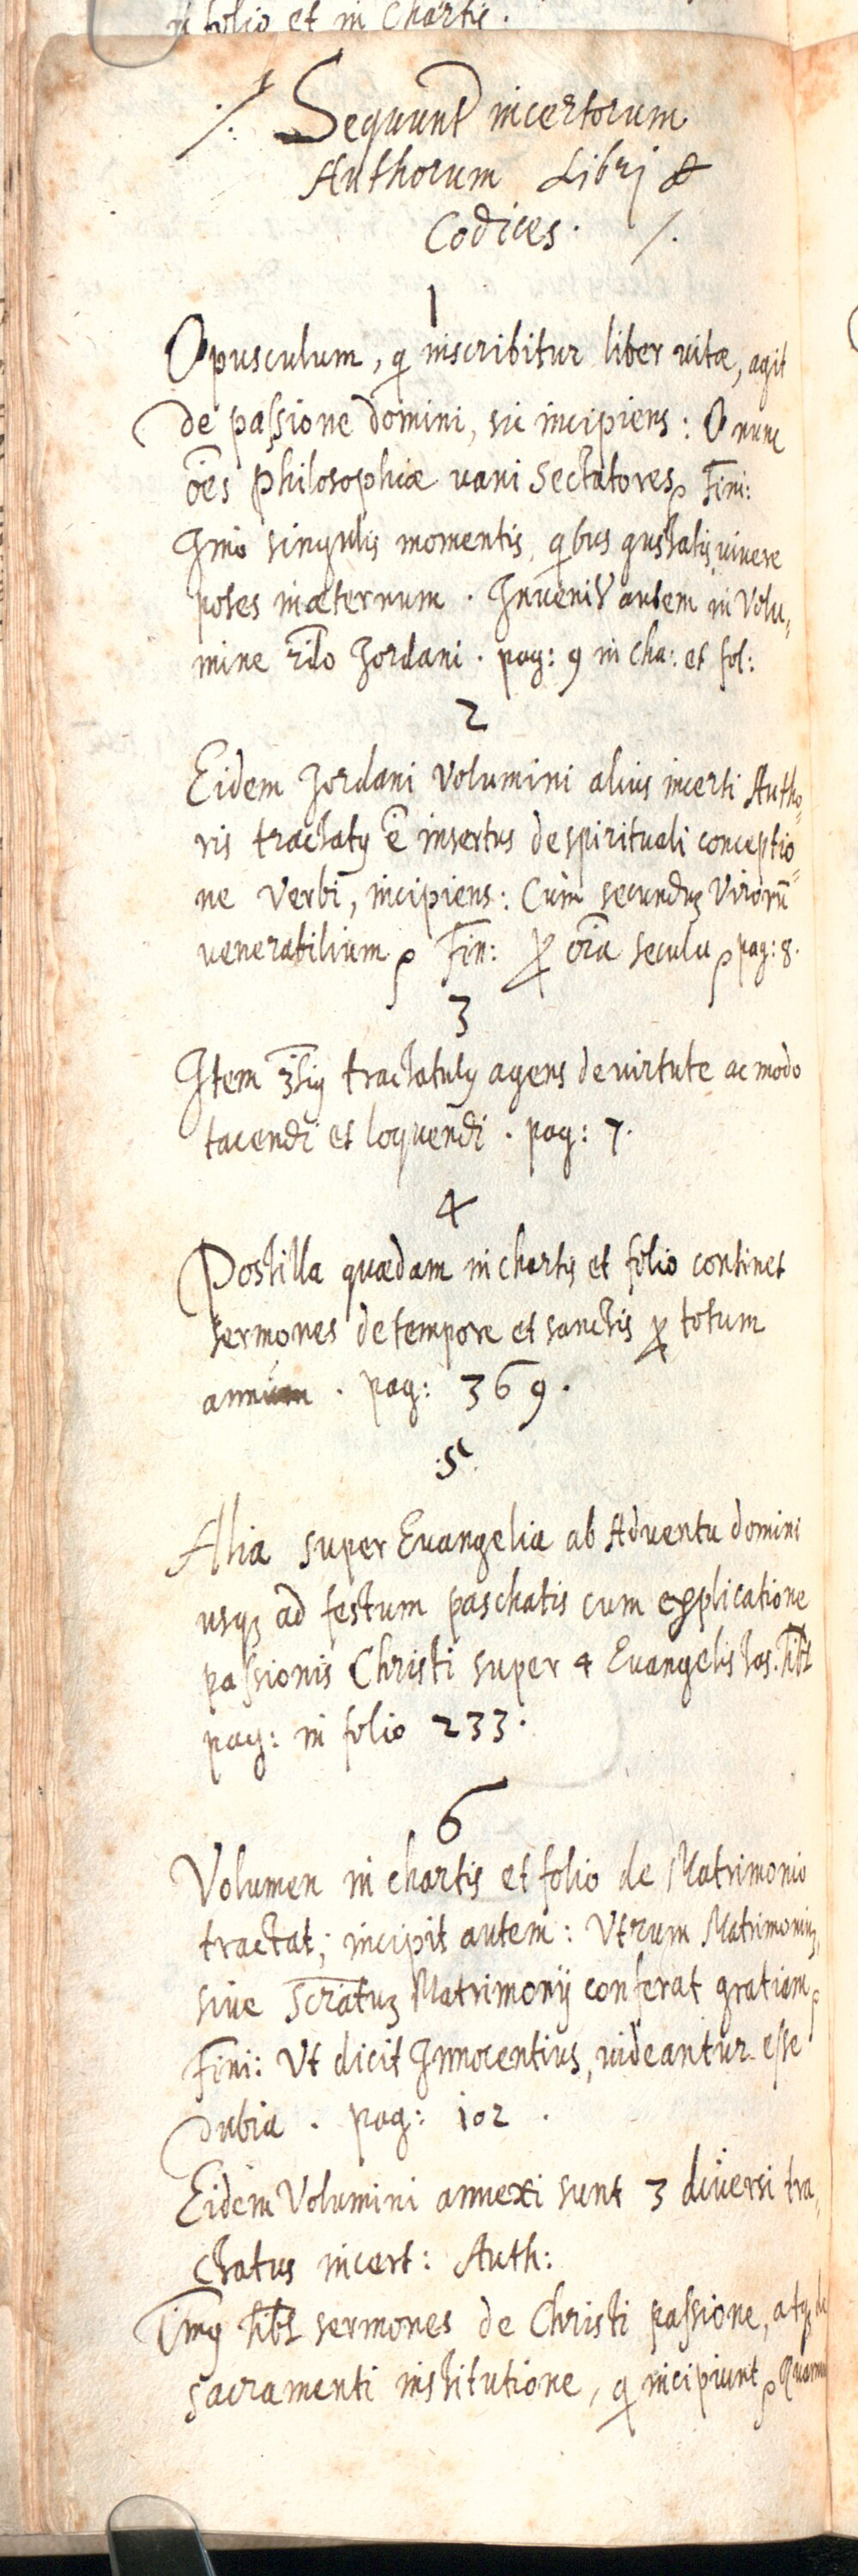 in folio et in Chartis.
⁒ Sequunt̄ incertorum
Authorum Libri &
Codices. ⁒
1
Opusculum, q inscribitur liber uitæ, agit
de passione domini, sic incipiens: O nunc
oēs philosophiæ uani Sectatores Fini:
Imo singulis momentis, qbus gustatis uiuere
potes inæternum. Inuenit̄ autem in Volu,
mine Jordani. pag: 9 in cha: et fol:
2
Eidem Jordani Volumini alius incerti Autho,
ris tractatꝰ ē insertus despirituali conceptio,
ne Verbi, incipiens: Cum secundꝫ Virorū
uenerabilium Fin: ꝑ oīa secula pag: 8.
3
Item 3tiꝰ tractatulꝰ agens deuirtute ac modo
tacendi et loquendi. pag: 7.
4
Postilla quædam in chartis et folio continet
sermones detempore et sanctis ꝑ totum
annum. pag: 369.
.5.
Alia super Euangelia ab Aduentu domini
usqꝫ ad festum paschatis cum explicatione
passionis Christi super 4 Euangelistas. hēt
pag: in folio 233.
6
Volumen in chartis et folio de Matrimonio
tractat; incipit autem: Vtrum Matrimoniuꝫ,
siue Scrātuꝫ Matrimonij conferat gratiam
Fini: Vt dicit Innocentius, uideantur esse
dubia. pag: 102.
Eidem Volumini annexi sunt 3 diuersi tra,
ctatus incert: Auth:
Imꝰ hēt sermones de Christi passione, atqꝫ de
sacramenti institutione, q incipiunt